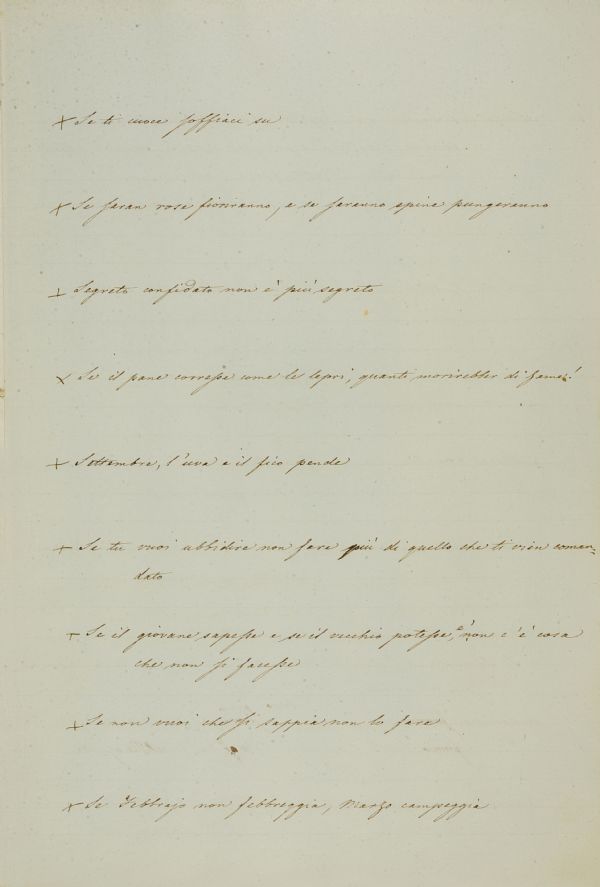 × Se ti cuoce soffiaci su
× Se saran rose fioriranno, e se saranno spine pungeranno
+ Segreto confidato non è più segreto
× Se il pane corresse come le lepri, quanti morirebber di fame!
+ Settembre, l'uva e il fico pende
+ Se tu vuoi ubbidire non fare più di quello che ti vien coman=
dato
+ Se il giovane sapesse e se il vecchio potesse, non c'è cosa
che non si facesse
+ Se non vuoi che si sappia non lo fare
× Se Febbrajo non febbreggia, Marzo campeggia